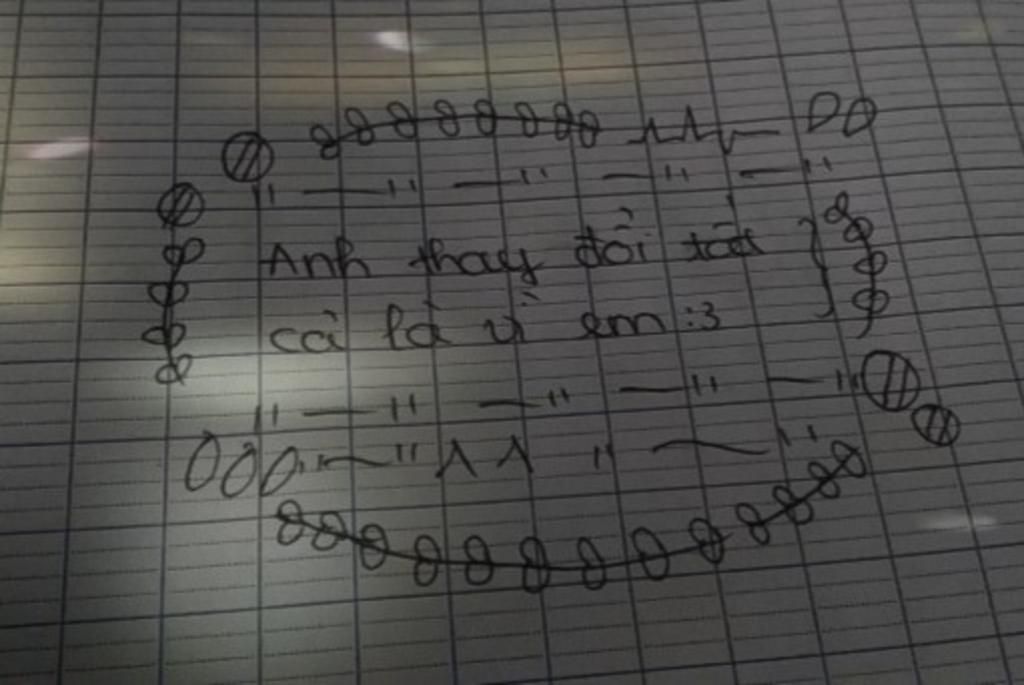 Anh thay đổi tất
cả là vì em :3